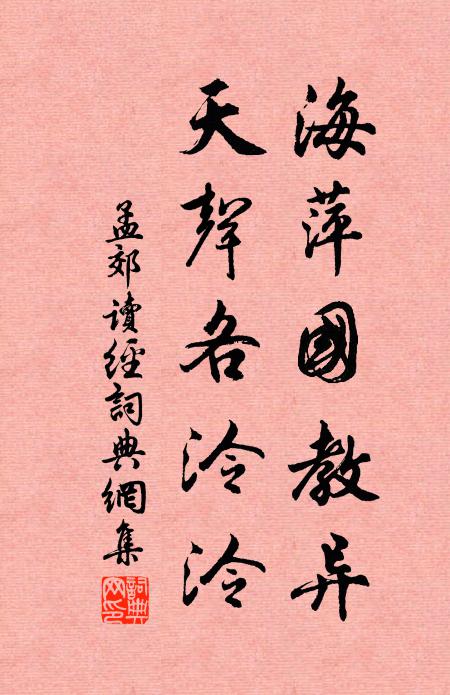 海萍國教异
天聲各泠泠
孟郊讀經詞典網集
詞典
网印